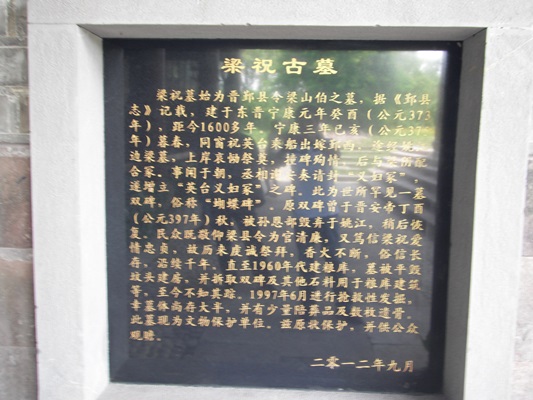 梁祝古墓
梁祝墓始为晋鄞县令梁山伯之墓，据《鄞县
志》记载，建于东晋宁康元年癸酉（公元373
年），距今1600多年。宁康三年已亥（公元37
年）暮春，同窗祝英台乘船出嫁鄞西，途经
迪梁墓，上岸哀恸祭奠，撞碑殉情，后与梁
合冢。事闻于朝，丞相谢安奏请封“义妇冢”，
遂增立“英台义妇冢”之碑。此为世所罕见一墓
双碑，俗称“蝴蝶碑”　原双碑曾于晋安帝丁酉
（公元397年）秋，被孙恩部毁弃于姚江，稍后恢
复。民众既敬仰梁县令为官清廉，又笃信梁祝爱
情忠贞，故历来虔诚祭拜，香火不断，俗信长
存，沿续千年。直至1960年代建粮库，墓被平毁
坟头建房，并拆取双碑及其他石料用于粮库建筑
等，至今不知其踪。1997年6月进行抢救性发掘，
幸墓体尚存大半，并有少量陪葬品及数枚遗骨。
此墓现为文物保护单位。兹原状保护，并供公众
观瞻。
二零一二年九月